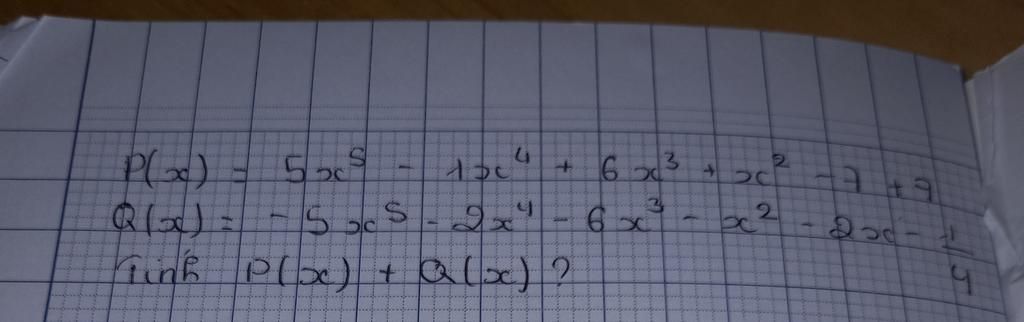 P(x) = 5x⁵ - 1x⁴ + 6x³ + x² - 7 + 9
Q(x) = -5x⁵ - 2x⁴ - 6x³ - x² - 2x - 1/4
Tính P(x) + Q(x) ?